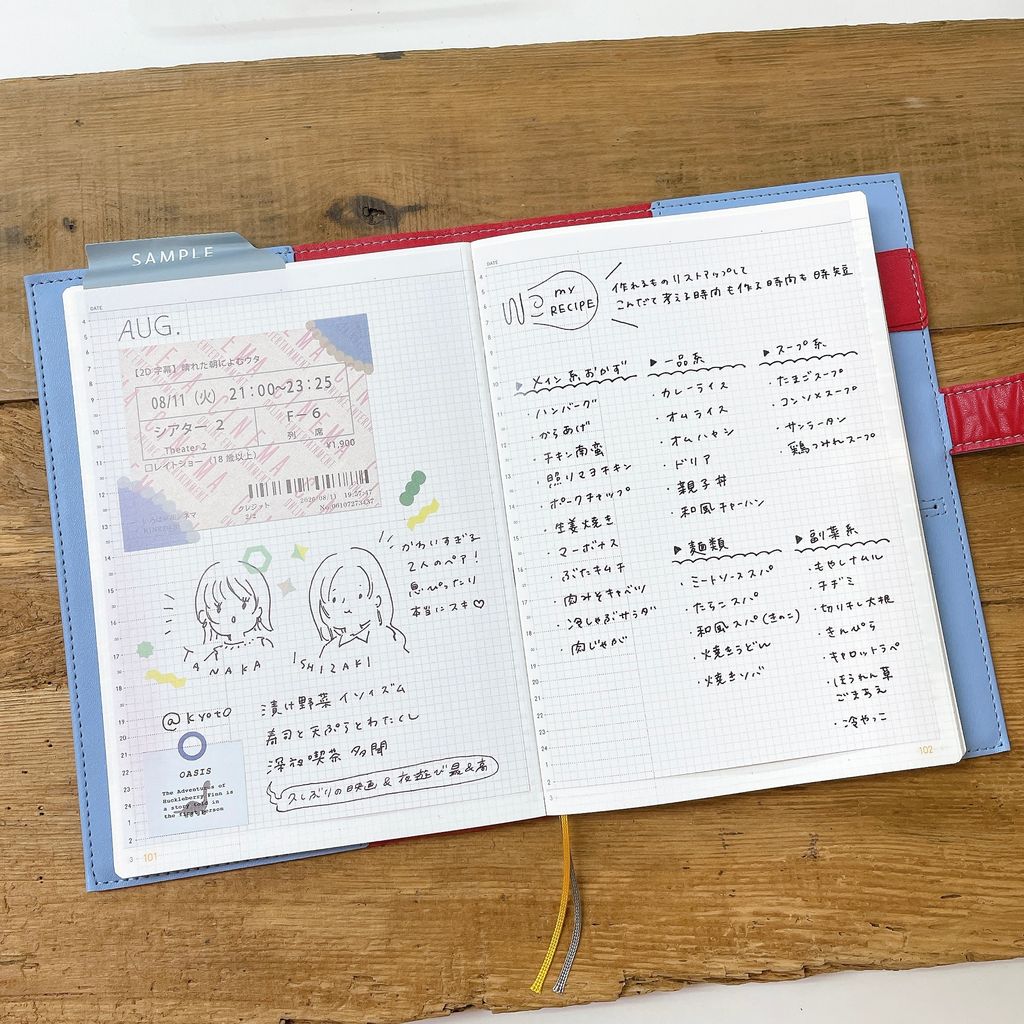 SAMPLE
DATE
AUG.
【2D 字幕】晴れた朝によむウタ
08/11（火） 21:00〜23:25
シアター 2
F－6
列 席
Theater 2
¥1,900
レイトショー（18歳以上）
クレジット
2020/08/11 19:57:47
No.0010727343
かわいすぎる
2人のペア！
息ぴったり
本当にスキ♡
TANAKA
ISHIZAKI
@kyoto
漬け野菜 イソイズム
寿司と天ぷらとわたくし
深夜喫茶 多聞
久しぶりの映画 & 夜遊び最&高
OASIS
The Adventures of
Huckleberry Finn is
a story told in
the first person
101
DATE
my
RECIPE
作れるものリストアップして
こんだて考える時間も作る時間も時短
▶メイン系おかず
・ハンバーグ
・からあげ
・チキン南蛮
・照りマヨチキン
・ポークチャップ
・生姜焼き
・マーボナス
・ぶたキムチ
・肉みそキャベツ
・冷しゃぶサラダ
・肉じゃが
▶一品系
・カレーライス
・オムライス
・オムハヤシ
・ドリア
・親子丼
・和風チャーハン
▶スープ系
・たまごスープ
・コンソメスープ
・サンラータン
・鶏つみれスープ
▶麺類
・ミートソーススパ
・たらこスパ
・和風スパ（きのこ）
・焼きうどん
・焼きソバ
▶副菜系
・もやしナムル
・チヂミ
・切り干し大根
・きんぴら
・キャロットラペ
・ほうれん草
ごまあえ
・冷やっこ
102